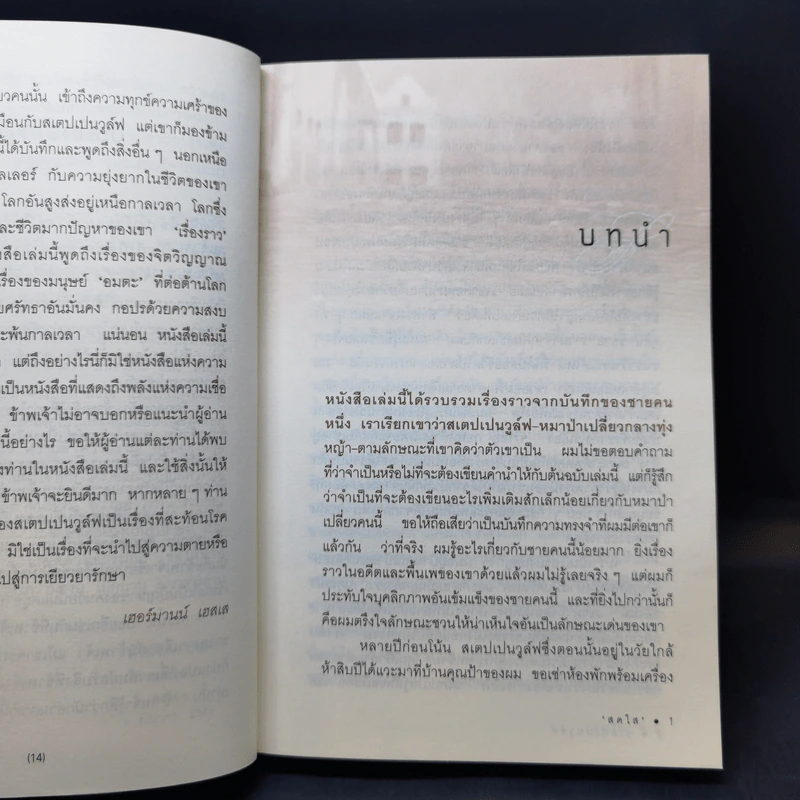 ยวคนนั้น เข้าถึงความทุกข์ความเศร้าของ
มือนกับสเตปเปนวูล์ฟ แต่เขาก็มองข้าม
นี้ได้บันทึกและพูดถึงสิ่งอื่น ๆ นอกเหนือ
ลเลอร์ กับความยุ่งยากในชีวิตของเขา
โลกอันสูงส่งอยู่เหนือกาลเวลา โลกซึ่ง
ละชีวิตมากปัญหาของเขา 'เรื่องราว'
งสือเล่มนี้พูดถึงเรื่องของจิตวิญญาณ
เรื่องของมนุษย์ 'อมตะ' ที่ต่อต้านโลก
ยศรัทธาอันมั่นคง กอปรด้วยความสงบ
ะพ้นกาลเวลา แน่นอน หนังสือเล่มนี้
แต่ถึงอย่างไรนี่ก็มิใช่หนังสือแห่งความ
เป็นหนังสือที่แสดงถึงพลังแห่งความเชื่อ
ข้าพเจ้าไม่อาจบอกหรือแนะนำผู้อ่าน
นี้อย่างไร ขอให้ผู้อ่านแต่ละท่านได้พบ
งท่านในหนังสือเล่มนี้ และใช้สิ่งนั้นให้
ข้าพเจ้าจะยินดีมาก หากหลาย ๆ ท่าน
องสเตปเปนวูล์ฟเป็นเรื่องที่สะท้อนโรค
มิใช่เป็นเรื่องที่จะนำไปสู่ความตายหรือ
ปสู่การเยียวยารักษา
เฮอร์มานน์ เฮสเส
(14)
บทนำ
หนังสือเล่มนี้ได้รวบรวมเรื่องราวจากบันทึกของชายคน
หนึ่ง เราเรียกเขาว่าสเตปเปนวูล์ฟ–หมาป่าเปลี่ยวกลางทุ่ง
หญ้า–ตามลักษณะที่เขาคิดว่าตัวเขาเป็น ผมไม่ขอตอบคำถาม
ที่ว่าจำเป็นหรือไม่ที่จะต้องเขียนคำนำให้กับต้นฉบับเล่มนี้ แต่ก็รู้สึก
ว่าจำเป็นที่จะต้องเขียนอะไรเพิ่มเติมสักเล็กน้อยเกี่ยวกับหมาป่า
เปลี่ยวคนนี้ ขอให้ถือเสียว่าเป็นบันทึกความทรงจำที่ผมมีต่อเขาก็
แล้วกัน ว่าที่จริง ผมรู้อะไรเกี่ยวกับชายคนนี้น้อยมาก ยิ่งเรื่อง
ราวในอดีตและพื้นเพของเขาด้วยแล้วผมไม่รู้เลยจริง ๆ แต่ผมก็
ประทับใจบุคลิกภาพอันเข้มแข็งของชายคนนี้ และที่ยิ่งไปกว่านั้นก็
คือผมตรึงใจลักษณะชวนให้น่าเห็นใจอันเป็นลักษณะเด่นของเขา
หลายปีก่อนโน้น สเตปเปนวูล์ฟซึ่งตอนนั้นอยู่ในวัยใกล้
ห้าสิบปีได้แวะมาที่บ้านคุณป้าของผม ขอเช่าห้องพักพร้อมเครื่อง
'สดใส' • 1